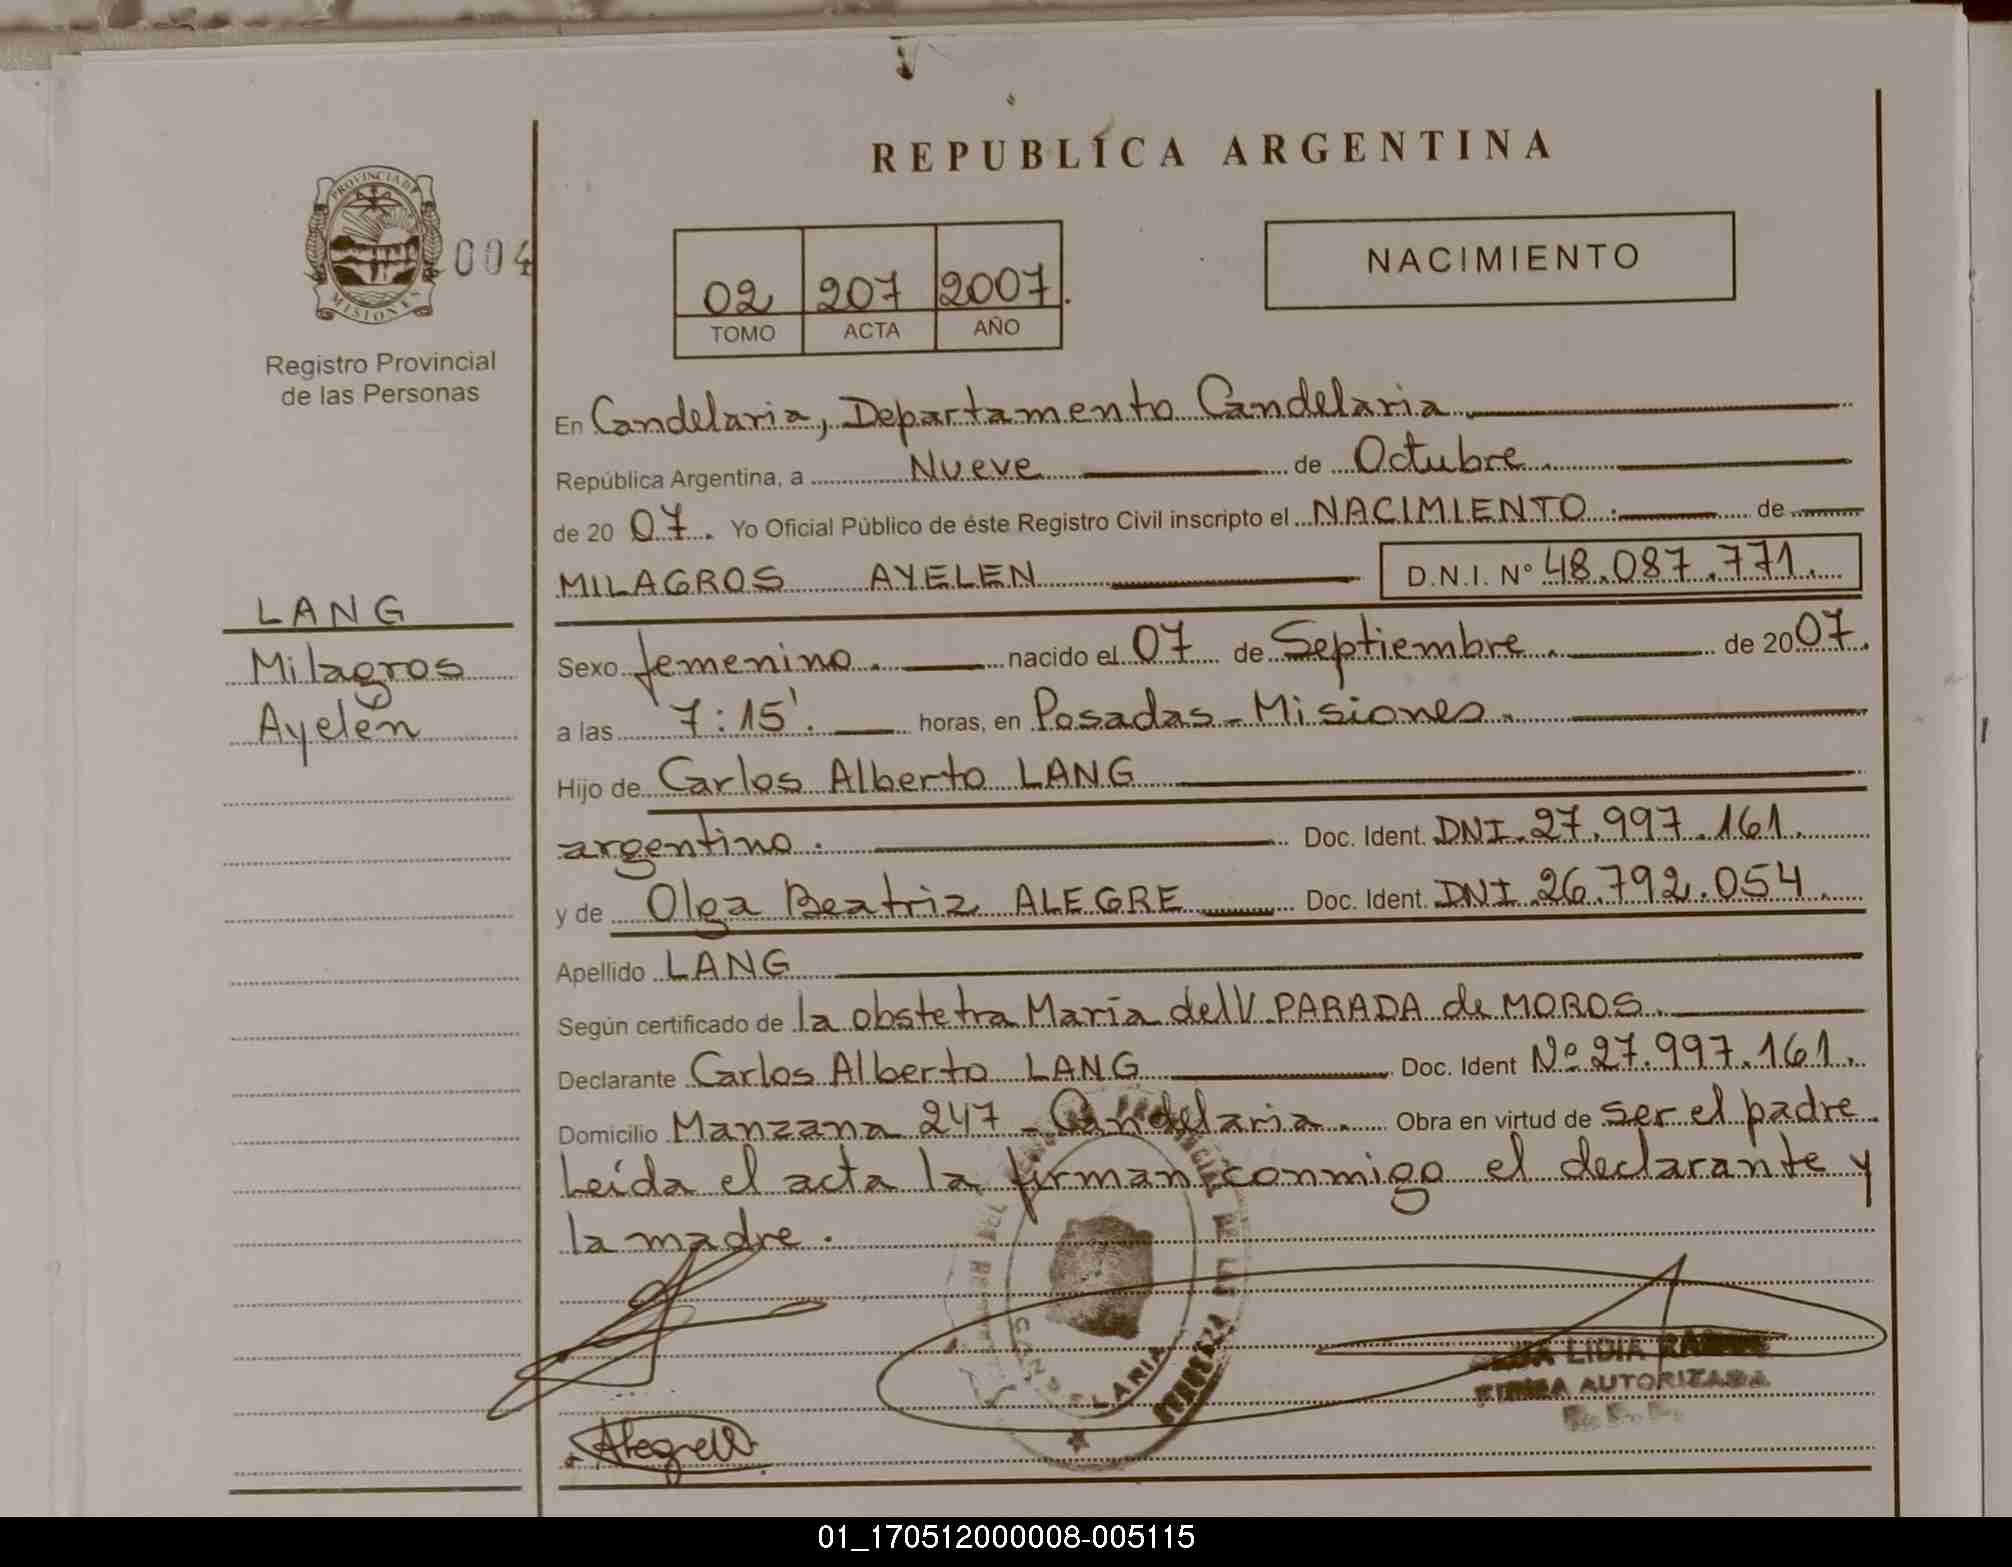 REPUBLICA ARGENTINA
PROVINCIA DE
MISIONES
004
Registro Provincial
de las Personas
02 207 2007.
TOMO ACTA AÑO
NACIMIENTO
LANG
Milagros
Ayelén
En Candelaria, Departamento Candelaria
República Argentina, a Nueve de Octubre
de 2007. Yo Oficial Público de éste Registro Civil inscripto el NACIMIENTO. de
MILAGROS AYELEN D.N.I. Nº 48.087.771.
Sexo femenino. nacido el 07 de Septiembre. de 2007.
a las 7:15'. horas, en Posadas - Misiones.
Hijo de Carlos Alberto LANG
argentino. Doc. Ident. DNI. 27.997.161.
y de Olga Beatriz ALEGRE Doc. Ident. DNI 26.792.054.
Apellido LANG
Según certificado de la obstetra María del V. PARADA de MOROS.
Declarante Carlos Alberto LANG Doc. Ident Nº 27.997.161.
Domicilio Manzana 247 - Candelaria. Obra en virtud de ser el padre
Leída el acta la firman conmigo el declarante y
la madre.
CANDELARIA
LIDIA
FIRMA AUTORIZADA
01_170512000008-005115